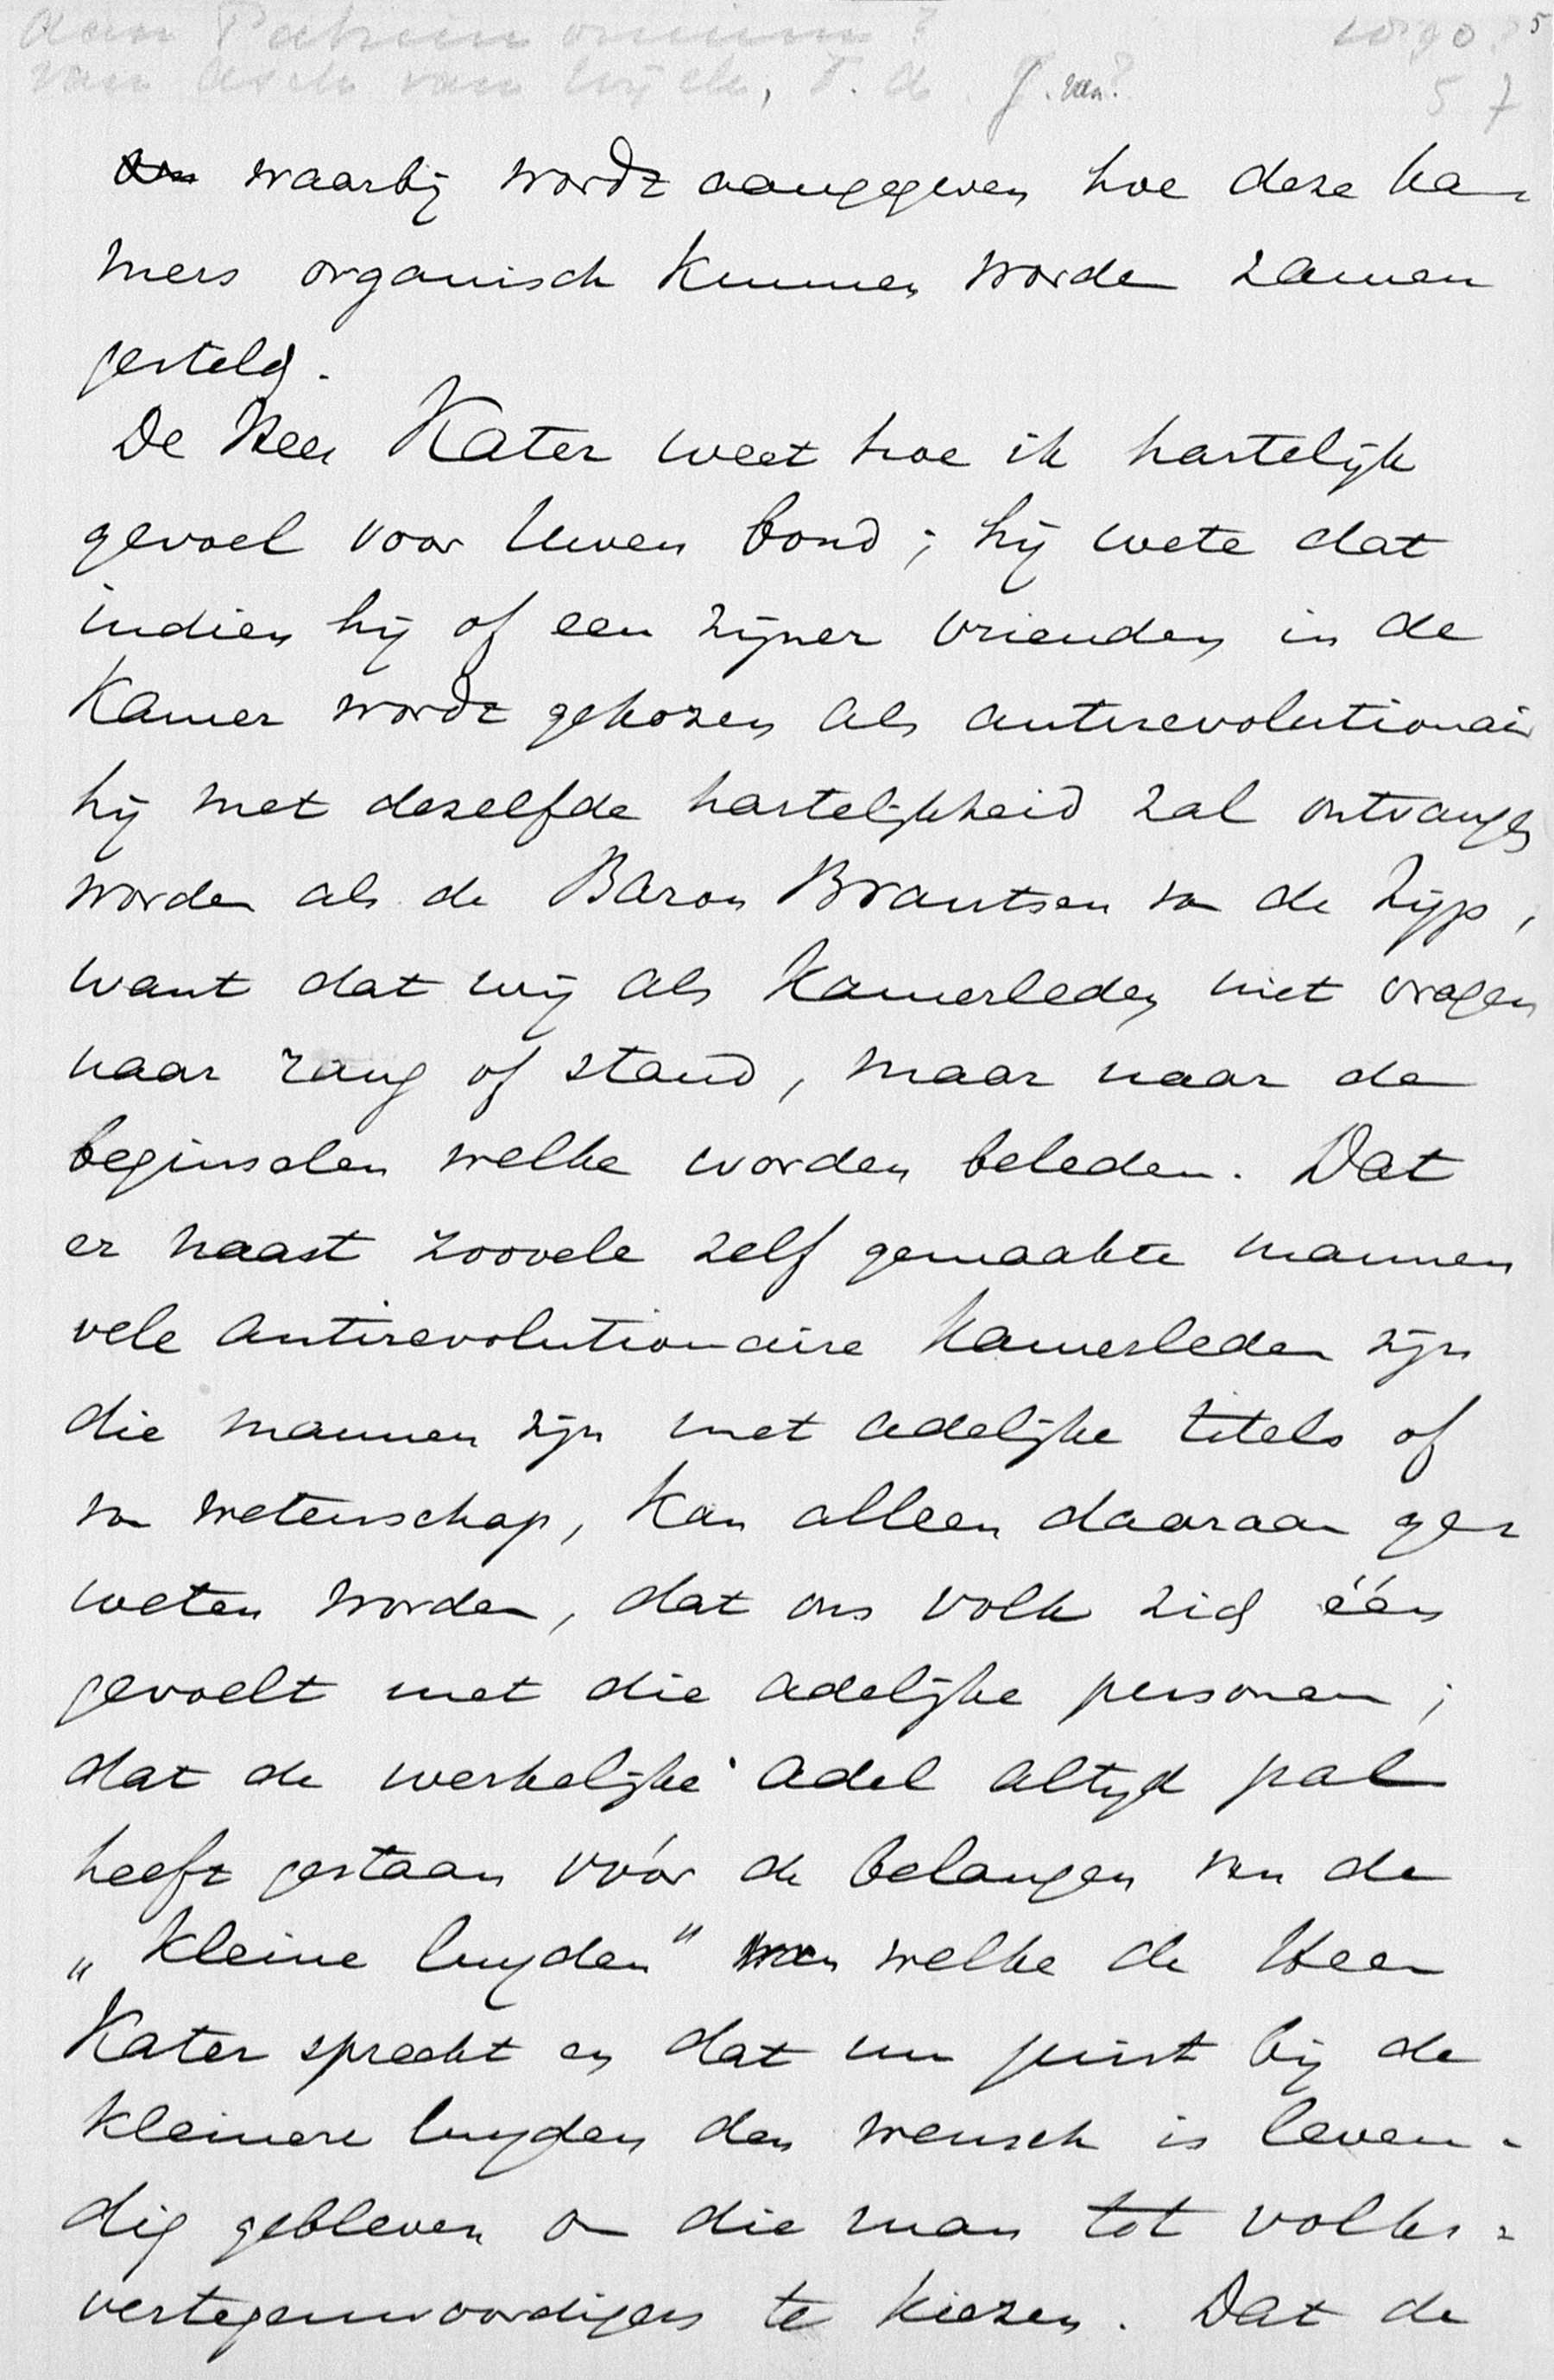 aan Patrimonium?
van Asch van Wijck, J. van?
5
5 7
waarbij wordt aangegeven hoe deze ka-
mers organisch kunnen worden zamen
gesteld.
De Heer Kater weet hoe ik hartelijk
gevoel voor Uwen bond; hij wete dat
indien hij of een zijner vrienden in de
Kamer wordt gekozen als antirevolutionair
hij met dezelfde hartelijkheid zal ontvangen
worden als de Baron Brantsen van de Zijp,
want dat wij als Kamerleden niet vragen
naar rang of stand, maar naar de
beginselen welke worden beleden. Dat
er naast zoovele zelf gemaakte mannen
vele antirevolutionaire Kamerleden zijn
die mannen zijn met adelijke titels of
van wetenschap, kan alleen daaraan ge-
weten worden, dat ons volk zich één
gevoelt met die adelijke personen;
dat de werkelijke adel altijd pal
heeft gestaan vóór de belangen van de
„kleine luyden" van welke de Heer
Kater spreekt en dat nu juist bij de
kleinere luyden den wensch is leven-
dig gebleven om die man tot volks-
vertegenwoordigers te kiezen. Dat de